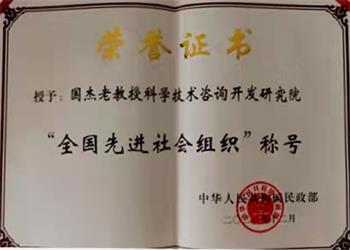 荣誉证书
授予：国杰老教授科学技术咨询开发研究院
“全国先进社会组织”称号
中华人民共和国民政部
二〇 二月